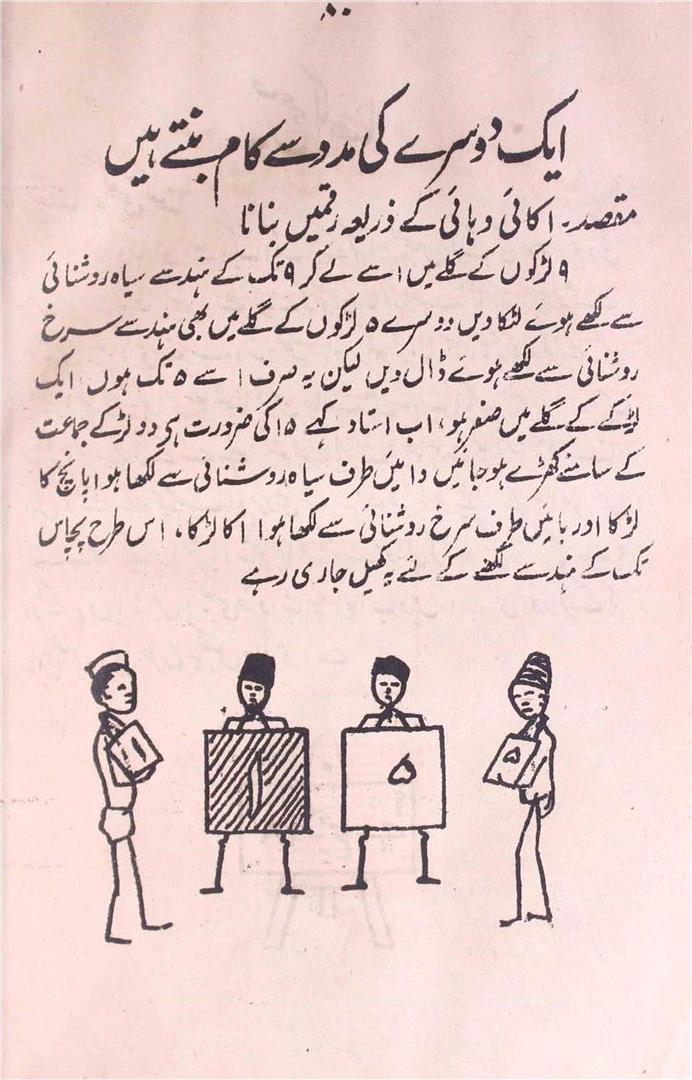 ۸۰
ایک دوسرے کی مدد سے کام بنتے ہیں
مقصد۔ اکائی دہائی کے ذریعہ رقمیں بنانا
۹ لڑکوں کے گلے میں ۱ سے لے کر ۹ تک کے ہندسے سیاہ روشنائی
سے لکھے ہوئے لٹکا دیں دوسرے ۵ لڑکوں کے گلے میں بھی ہندسے سرخ
روشنائی سے لکھے ہوئے ڈال دیں لیکن یہ صرف ۱ سے ۵ تک ہوں ایک
لڑکے کے گلے میں صفر ہو، اب استاد کہے ۱۵ کی ضرورت ہی دو لڑکے جماعت
کے سامنے کھڑے ہو جائیں دائیں طرف سیاہ روشنائی سے لکھا ہوا پانچ کا
لڑکا اور بائیں طرف سرخ روشنائی سے لکھا ہوا ۱ کا لڑکا، اس طرح پچاس
تک کے ہندسے لکھنے کے لئے یہ کھیل جاری رہے
۱۱
۱
۵
۵